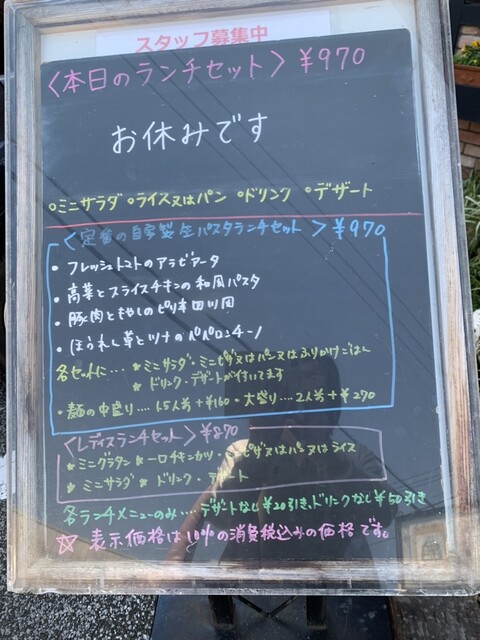 スタッフ募集中
〈本日のランチセット〉¥970
お休みです
○ミニサラダ ○ライス又はパン ○ドリンク ○デザート
〈定番の自家製生パスタランチセット〉¥970
・フレッシュトマトのアラビアータ
・高菜とスライスチキンの和風パスタ
・豚肉ともやしのピリ辛四川風
・ほうれん草とツナのペペロンチーノ
各セットに… ★ミニサラダ・ミニピザ又はパン又はふりかけごはん
★ドリンク・デザートが付いてます
・麺の中盛り…1.5人前+¥160・大盛り…2人前+¥270
〈レディスランチセット〉¥870
★ミニグラタン ★一口チキンカツ・ミニピザ又はパン又はライス
★ミニサラダ ★ドリンク・デザート
各ランチメニューのみ…デザートなし¥20引き、ドリンクなし¥50引き
☆表示価格は10%の消費税込みの価格です。